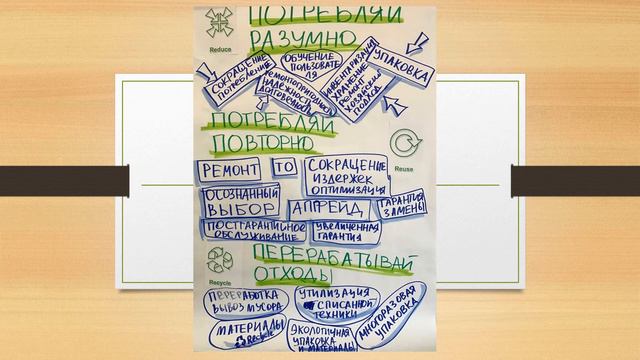 ПОТРЕБЛЯЙ
РАЗУМНО
Reduce
СОКРАЩЕНИЕ
ПОТРЕБЛЕНИЯ
ОБУЧЕНИЕ
ПОЛЬЗОВАТЕ
ЛЯ
РЕМОНТОПРИГОДНОСТЬ
НАДЕЖНОСТЬ
ДОЛГОВЕЧНОСТЬ
ИНВЕНТАРИЗАЦИЯ
ХРАНЕНИЕ
РЕМОНТ
ХОЗЯЙСКИЙ
ПОДХОД
УПАКОВКА
ПОТРЕБЛЯЙ
ПОВТОРНО
Reuse
РЕМОНТ
ТО
СОКРАЩЕНИЕ
ИЗДЕРЖЕК
ОПТИМИЗАЦИЯ
ОСОЗНАННЫЙ
ВЫБОР
АПГРЕЙД
ГАРАНТИЯ
ЗАМЕНЫ
ПОСТГАРАНТИЙНОЕ
ОБСЛУЖИВАНИЕ
УВЕЛИЧЕННАЯ
ГАРАНТИЯ
ПЕРЕРАБАТЫВАЙ
ОТХОДЫ
Recycle
ПЕРЕРАБОТКА
ВЫВОЗ МУСОРА
УТИЛИЗАЦИЯ
СПИСАННОЙ
ТЕХНИКИ
МНОГОРАЗОВАЯ
УПАКОВКА
МАТЕРИАЛЫ
Recycle
ЭКОЛОГИЧНАЯ
УПАКОВКА
И МАТЕРИАЛЫ